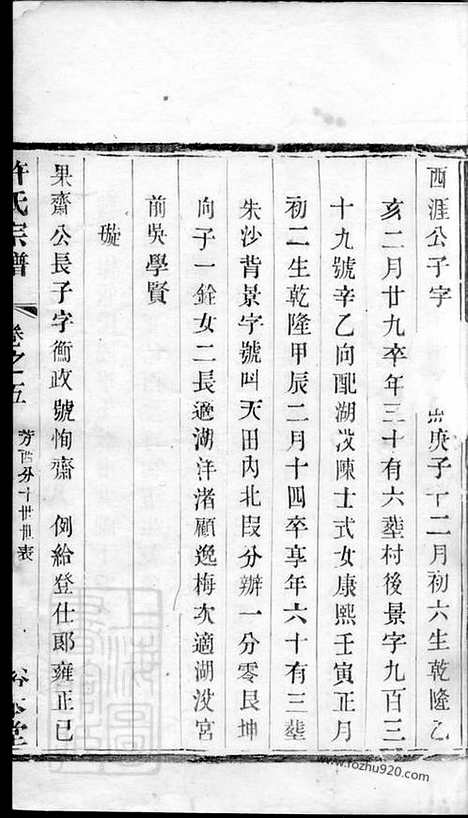 西涯公子字 庚子十二月初六生乾隆乙
亥二月廿九卒年三十有六塟村後景字九百三
十九號辛乙向配湖沒陳士式女康熙壬寅正月
初二生乾隆甲辰二月十四卒享年六十有三塟
朱沙背景字號叫天田內北叚分辦一分零艮坤
向子一銓女二長適湖洋渚顧逸梅次適湖沒宮
前吳學賢
璇
果齋公長子字衡政號恂齋 例給登仕郎雍正已
許氏宗譜 卷之五 芳酉分十世世表
www.fozhu920.com